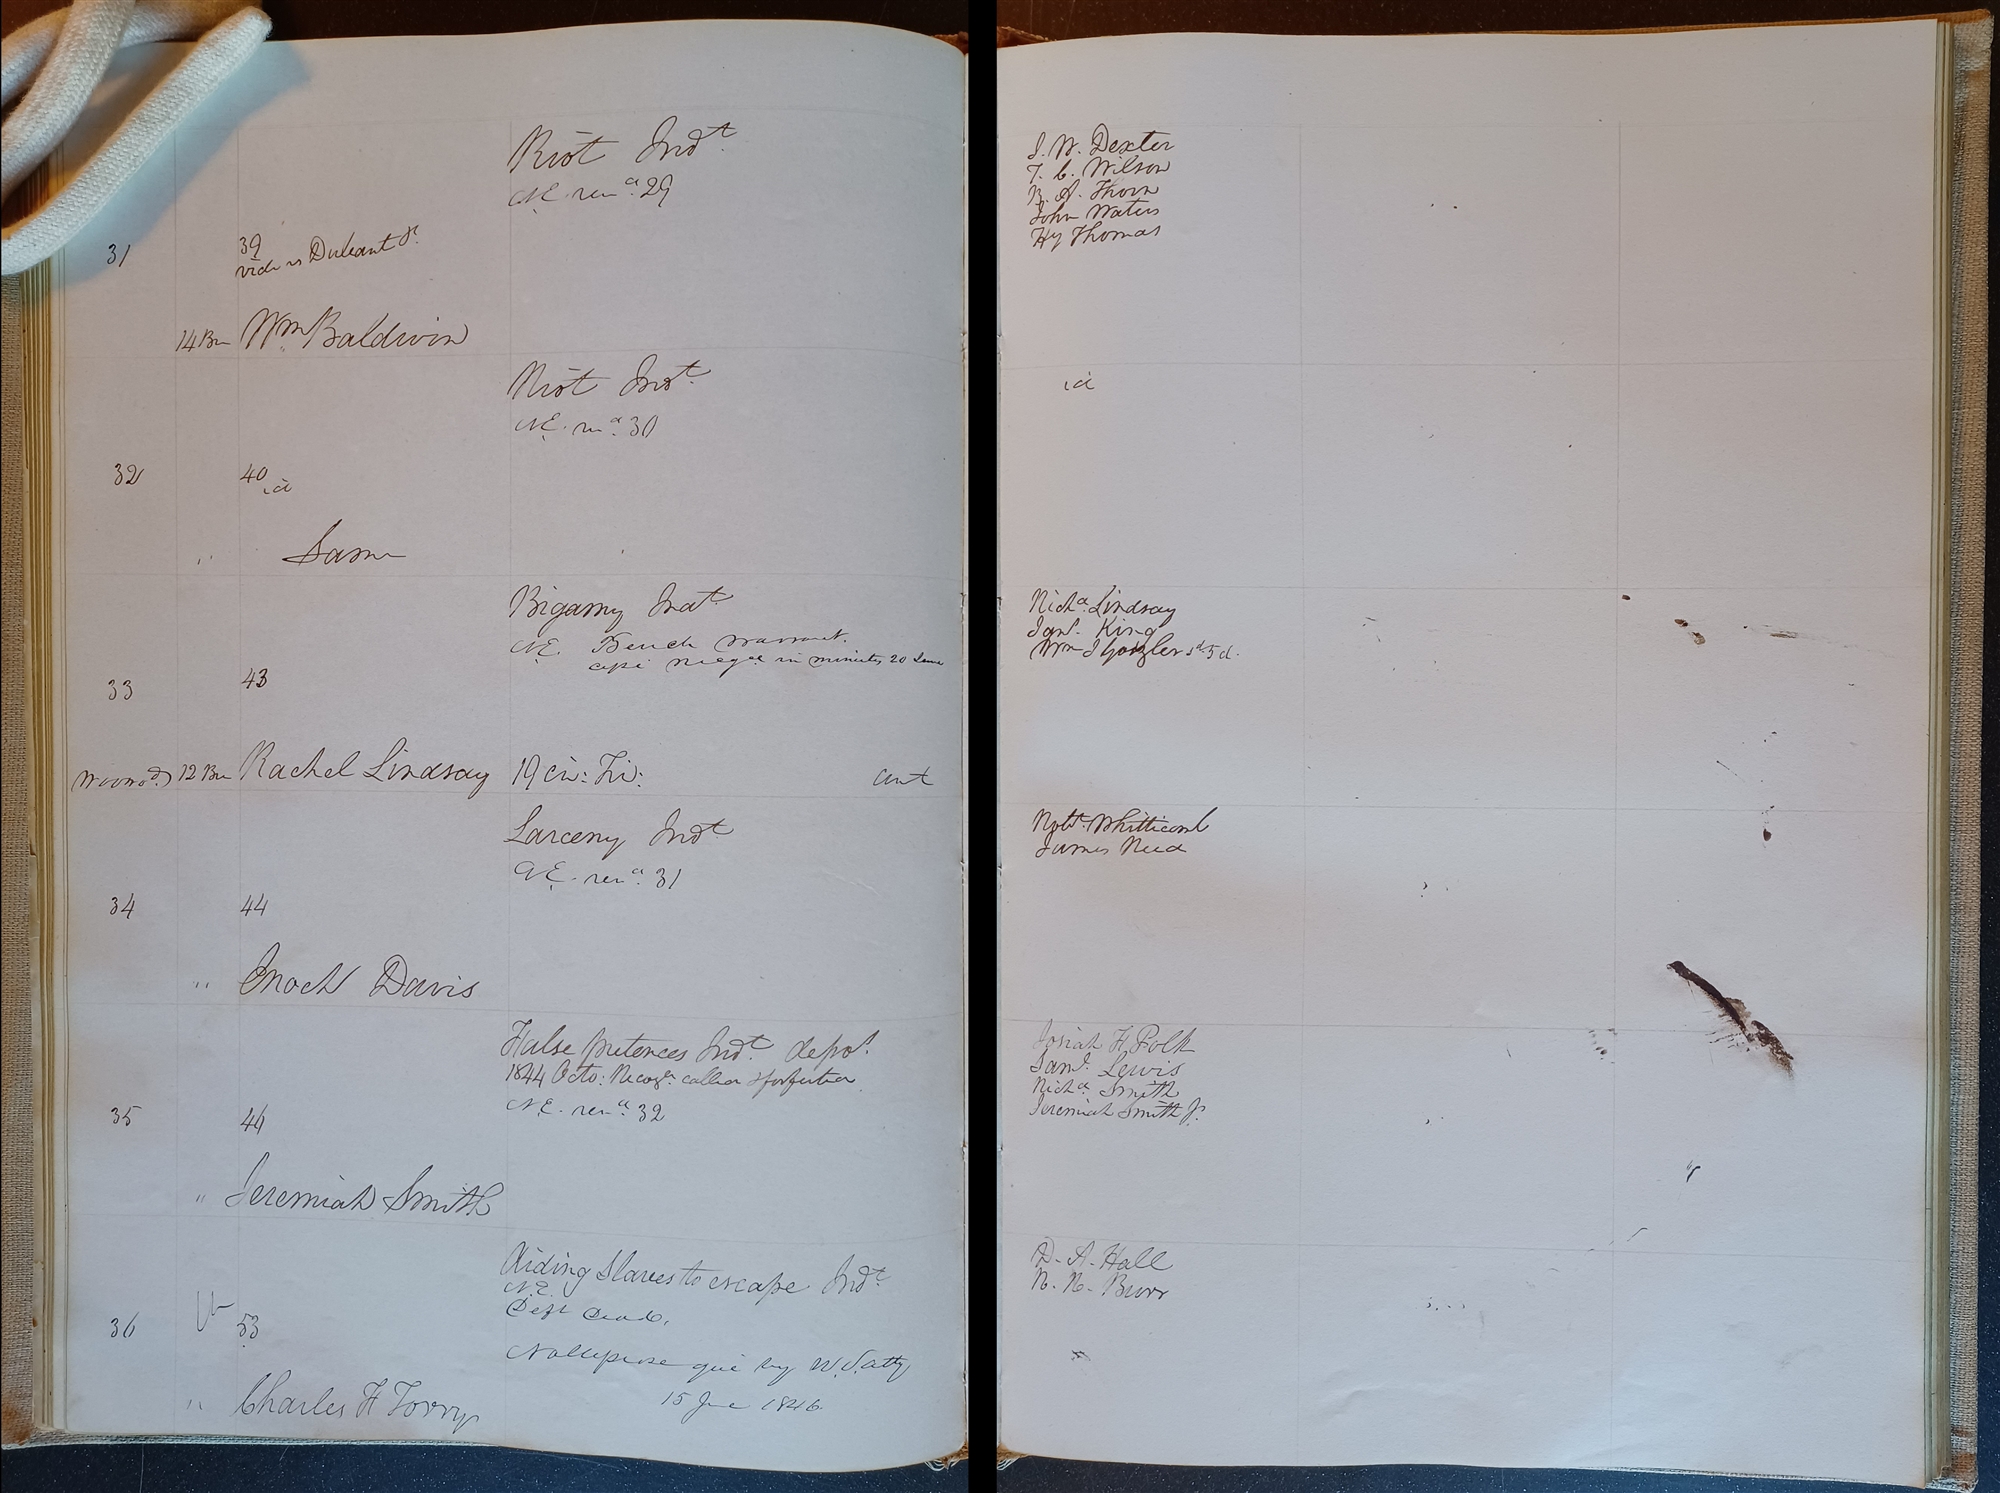 Riot Indt.
N.E. rena. 29
31
39
vide vs Duhant Jr.
14 Bu Wm. Baldwin
Riot Indt.
N.E. rna. 30
32
40
id
" Same
Bigamy Indt.
N.E. Bench warrant.
cepi in minutes 20 June
33
43
12 Bu Rachel Lindsay 19 Ci: Fi: cont
Larceny Indt.
N.E. rena. 31
34
44
" Enoch Davis
False pretences Indt. depos.
1844 Octo: Recogs. called & forfeited
N.E. rena. 32
35
46
" Jeremiah Smith
Aiding Slaves to escape Indt.
N.E.
Deft Dead.
36
53
Nolle prose qui by U.S. atty
15 June 1846
" Charles F Torry
J. W. Dexter
T. C. Wilson
B. A. Thorn
John Waters
Hy Thomas
id
Richd. Lindsay
Saml. King
Wm J
Robt. Whitticomb
James Reed
Josiah F. Polk
Saml. Lewis
Richd. Smith
Jeremiah Smith Jr.
D. A. Hall
R. R. Burr